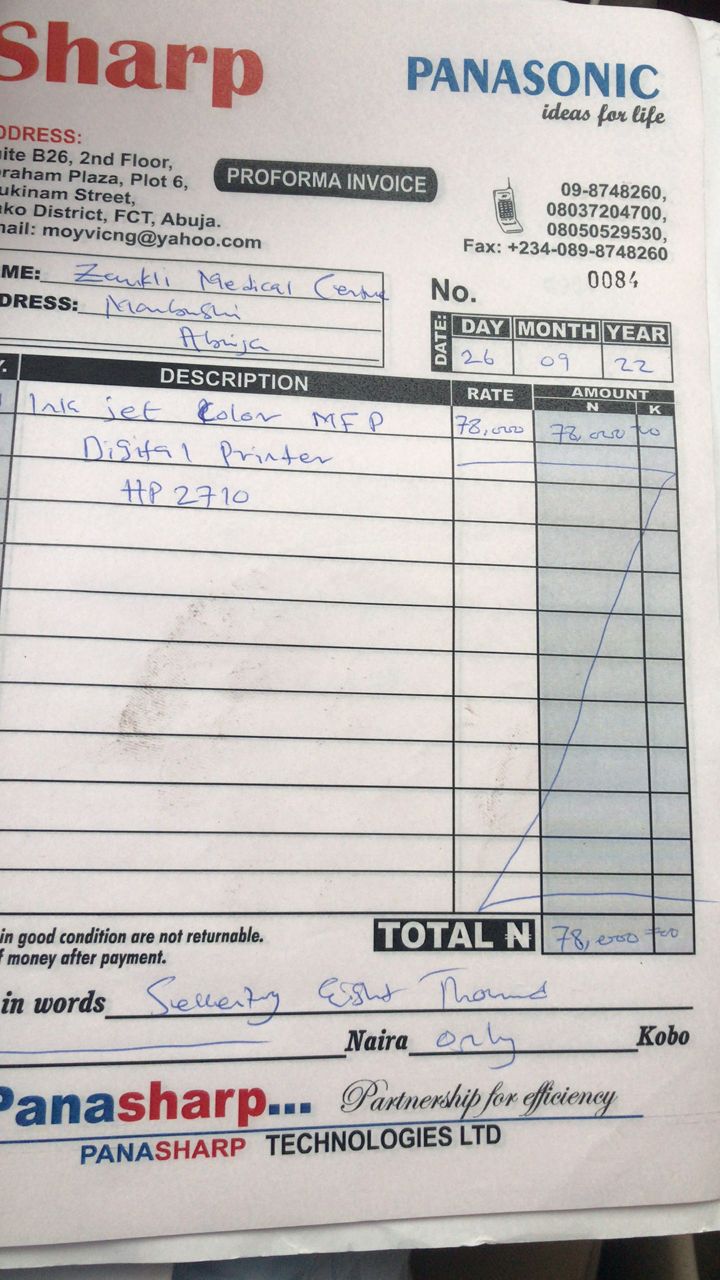 Sharp
PANASONIC
ideas for life
DDRESS:
ite B26, 2nd Floor,
raham Plaza, Plot 6,
ukinam Street,
ako District, FCT, Abuja.
nail: moyvicng@yahoo.com
PROFORMA INVOICE
09-8748260,
08037204700,
08050529530,
Fax: +234-089-8748260
ME: Zankli Medical Centre
DRESS: Mabushi
Abuja
No. 0084
DATE: DAY MONTH YEAR
26 09 22
DESCRIPTION RATE AMOUNT
N K
1 Ink jet Color MFP 78,000 78,000 =00
Digital Printer
HP 2710
in good condition are not returnable.
f money after payment.
TOTAL ₦ 78,000 =00
in words Seventy Eight Thousand
Naira only Kobo
Panasharp... Partnership for efficiency
PANASHARP TECHNOLOGIES LTD